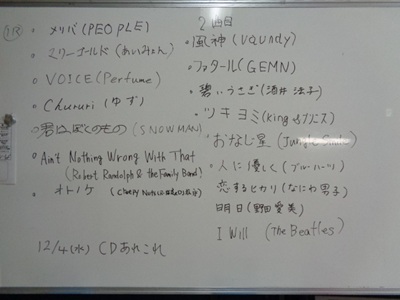 ・メリバ(PEOPLE)
・マリーゴールド(あいみょん)
・VOICE(Perfume)
・Chururi(ゆず)
・君はぼくのもの(SNOWMAN)
・Ain't Nothing Wrong With That
(Robert Randolph & the Family Band)
・オトノケ(Creepy Nuts
12/4(水) CDあれこれ
2回目
・風神(Vaundy)
・ファタール(GEMN)
・碧いうさぎ(酒井法子)
・ツキヨミ(King &プリンス)
・おなじ星(Jungle Smile)
・人に優しく(ブルーハーツ)
恋するヒカリ(なにわ男子)
明日(野田愛実)
I Will (The Beatles)